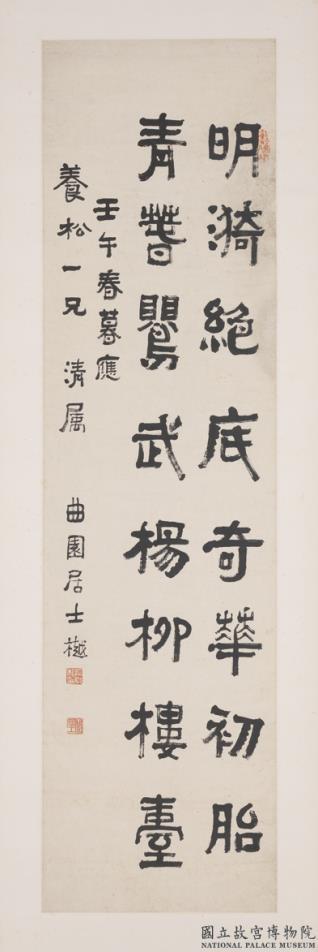 明漪絕底奇華初胎
青萅鸎武楊柳樓臺
壬午春暮應
養松一兄 清属 曲園居士樾
國立故宮博物院
NATIONAL PALACE MUSEUM